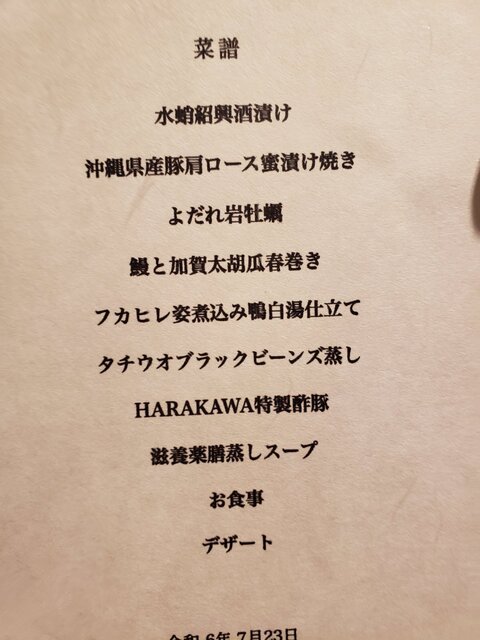 菜譜
水蛸紹興酒漬け
沖縄県産豚肩ロース蜜漬け焼き
よだれ岩牡蠣
鰻と加賀太胡瓜春巻き
フカヒレ姿煮込み鴨白湯仕立て
タチウオブラックビーンズ蒸し
HARAKAWA特製酢豚
滋養薬膳蒸しスープ
お食事
デザート
令和 6年 7月23日